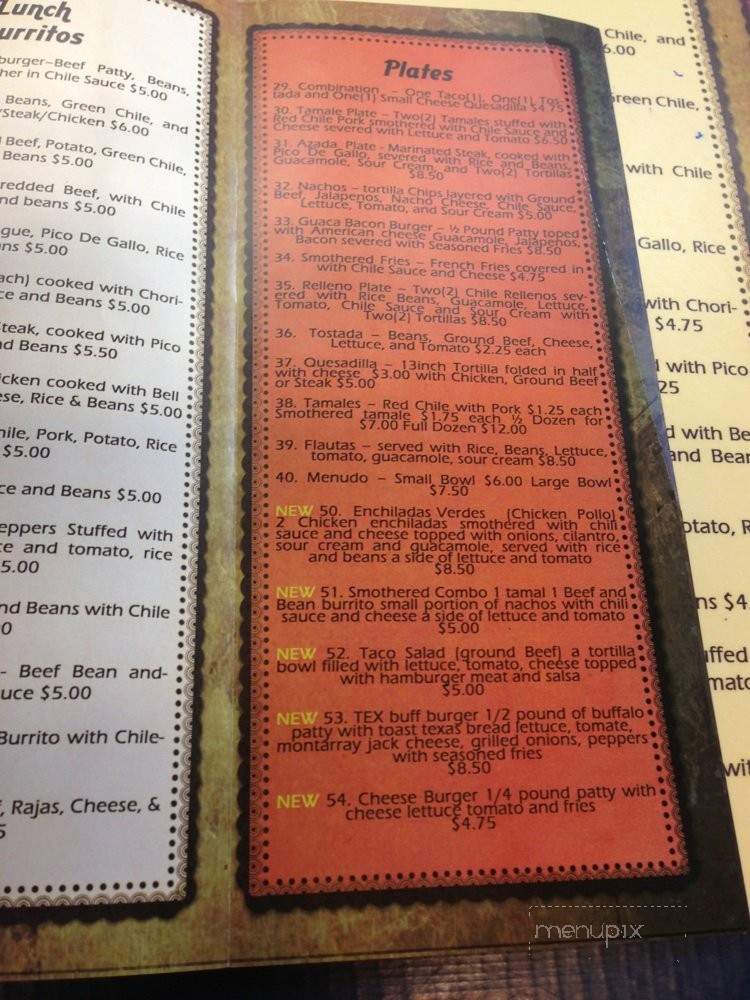 Lunch
urritos
burger-Beef Patty, Beans,
her in Chile Sauce $5.00
Beans, Green Chile, and
/Steak/Chicken $6.00
Beef, Potato, Green Chile,
Beans $5.00
redded Beef, with Chile
nd beans $5.00
gue, Pico De Gallo, Rice
ns $5.00
ach) cooked with Chori-
ce and Beans $5.00
teak, cooked with Pico
nd Beans $5.50
icken cooked with Bell
ese, Rice & Beans $5.00
hile, Pork, Potato, Rice
$5.00
ce and Beans $5.00
eppers Stuffed with
ce and tomato, rice
5.00
nd Beans with Chile
0
- Beef Bean and-
uce $5.00
Burrito with Chile-
, Rajas, Cheese, &
5
Plates
29. Combination – One Taco(1), One(1) Tos-
tada and One(1) Small Cheese Quesadilla $4.75
30. Tamale Plate – Two(2) Tamales stuffed with
Red Chile Pork smothered with Chile Sauce and
Cheese severed with Lettuce and Tomato $6.50
31. Azada Plate - Marinated Steak, cooked with
Pico De Gallo, severed with Rice and Beans,
Guacamole, Sour Cream, and Two(2) Tortillas
$8.50
32. Nachos – tortilla Chips layered with Ground
Beef, Jalapenos, Nacho Cheese, Chile Sauce,
Lettuce, Tomato, and Sour Cream $5.00
33. Guaca Bacon Burger – ½ Pound Patty toped
with American cheese Guacamole, Jalapenos,
Bacon severed with Seasoned Fries $8.50
34. Smothered Fries – French Fries covered in
with Chile Sauce and Cheese $4.75
35. Relleno Plate – Two(2) Chile Rellenos sev-
ered with Rice Beans, Guacamole, Lettuce,
Tomato, Chile Sauce and Sour Cream with
Two(2) Tortillas $8.50
36. Tostada – Beans, Ground Beef, Cheese,
Lettuce, and Tomato $2.25 each
37. Quesadilla – 13inch Tortilla folded in half
with cheese $3.00 with Chicken, Ground Beef
or Steak $5.00
38. Tamales – Red Chile with Pork $1.25 each
Smothered tamale $1.75 each ½ Dozen for
$7.00 Full Dozen $12.00
39. Flautas – served with Rice, Beans, Lettuce,
tomato, guacamole, sour cream $8.50
40. Menudo – Small Bowl $6.00 Large Bowl
$7.50
NEW 50. Enchiladas Verdes (Chicken Pollo)
2 Chicken enchiladas smothered with chili
sauce and cheese topped with onions, cilantro,
sour cream and guacamole, served with rice
and beans a side of lettuce and tomato
$8.50
NEW 51. Smothered Combo 1 tamal 1 Beef and
Bean burrito small portion of nachos with chili
sauce and cheese a side of lettuce and tomato
$5.00
NEW 52. Taco Salad (ground Beef) a tortilla
bowl filled with lettuce, tomato, cheese topped
with hamburger meat and salsa
$5.00
NEW 53. TEX buff burger 1/2 pound of buffalo
patty with toast texas bread lettuce, tomate,
montarray jack cheese, grilled onions, peppers
with seasoned fries
$8.50
NEW 54. Cheese Burger 1/4 pound patty with
cheese lettuce tomato and fries
$4.75
Chile, and
6.00
reen Chile,
with Chile
Gallo, Rice
with Chori-
$4.75
with Pico
25
d with Be
and Bear
otato, R
ns $4
uffed
mato
wit
menupix